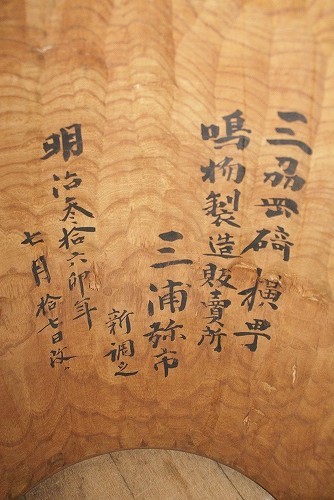 三
横町
鳴物製造販賣所
三浦弥市
新調之
明治参拾六卯年
七月拾七日改